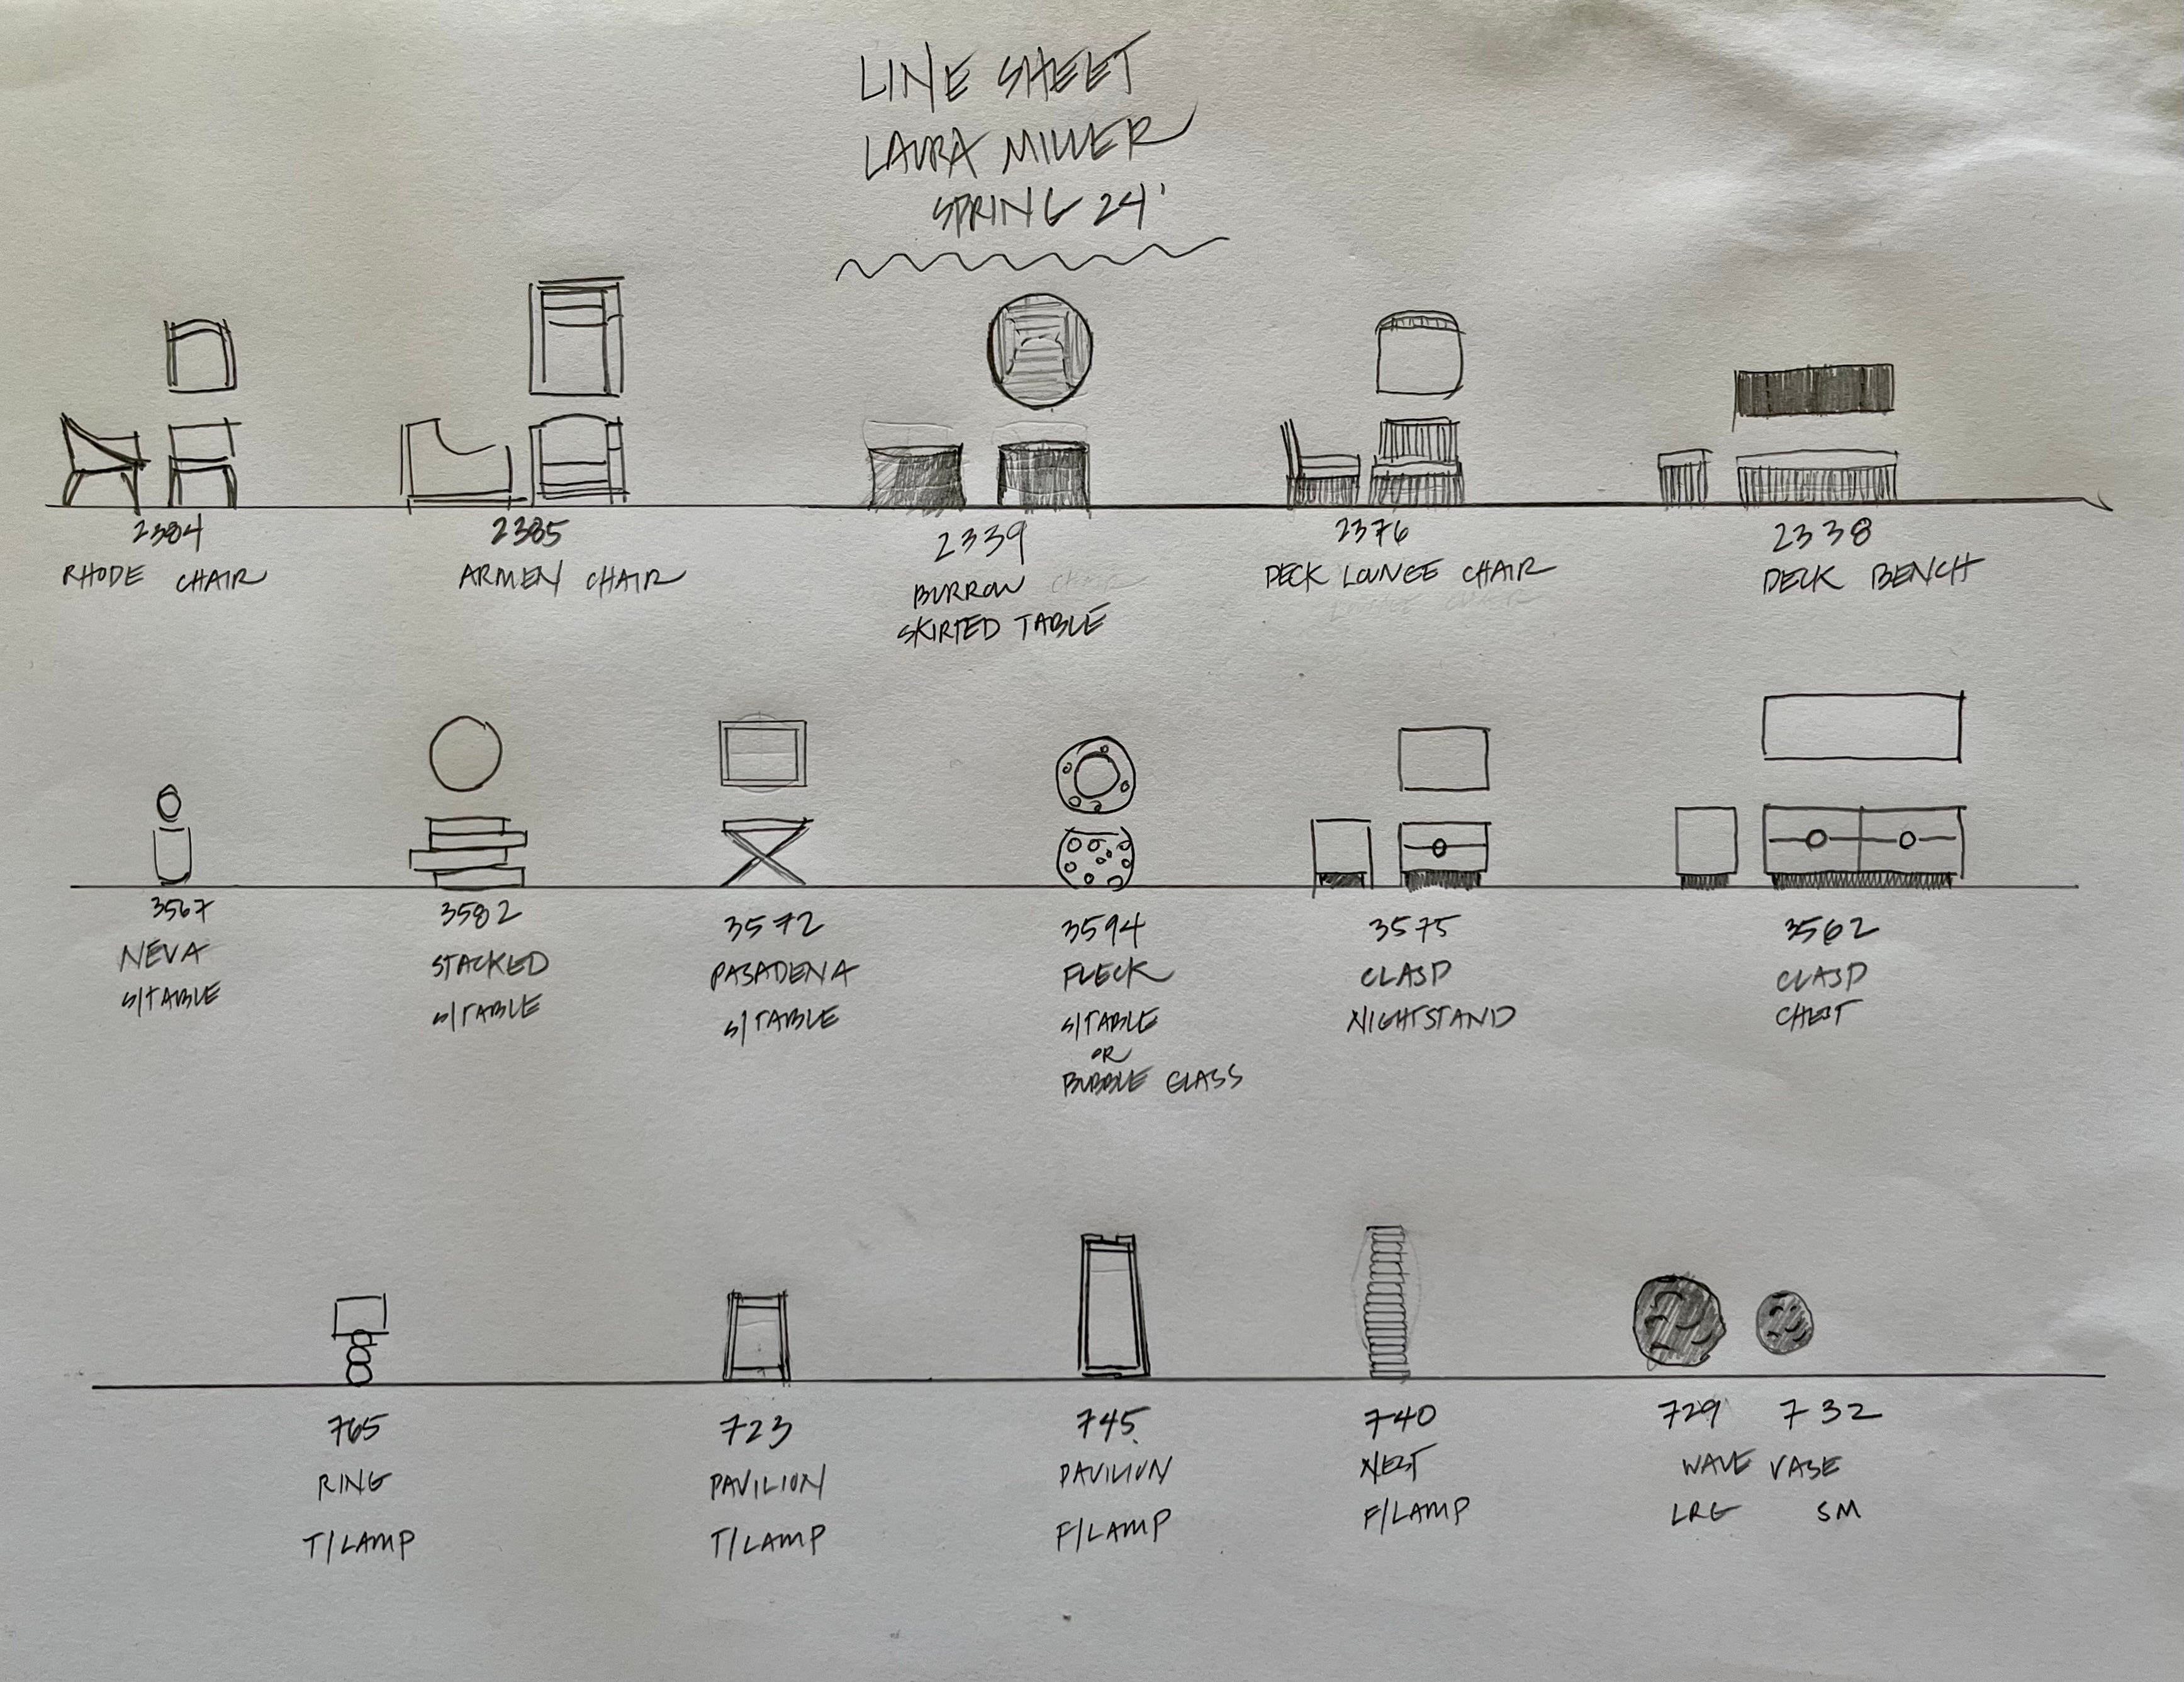 LINE SHEET
LAURA MILLER
SPRING 24'
2384
RHODE CHAIR
2385
ARMEN CHAIR
2339
BURROW CHAIR
SKIRTED TABLE
2376
DECK LOUNGE CHAIR
LOUNGE CHAIR
2338
DECK BENCH
3567
NEVA
S/TABLE
3582
STACKED
S/TABLE
3572
PASADENA
S/TABLE
3594
FLECK
S/TABLE
OR
BUBBLE GLASS
3575
CLASP
NIGHTSTAND
3562
CLASP
CHEST
765
RING
T/LAMP
723
PAVILION
T/LAMP
745
PAVILION
F/LAMP
740
NEST
F/LAMP
729 732
WAVE VASE
LRG SM